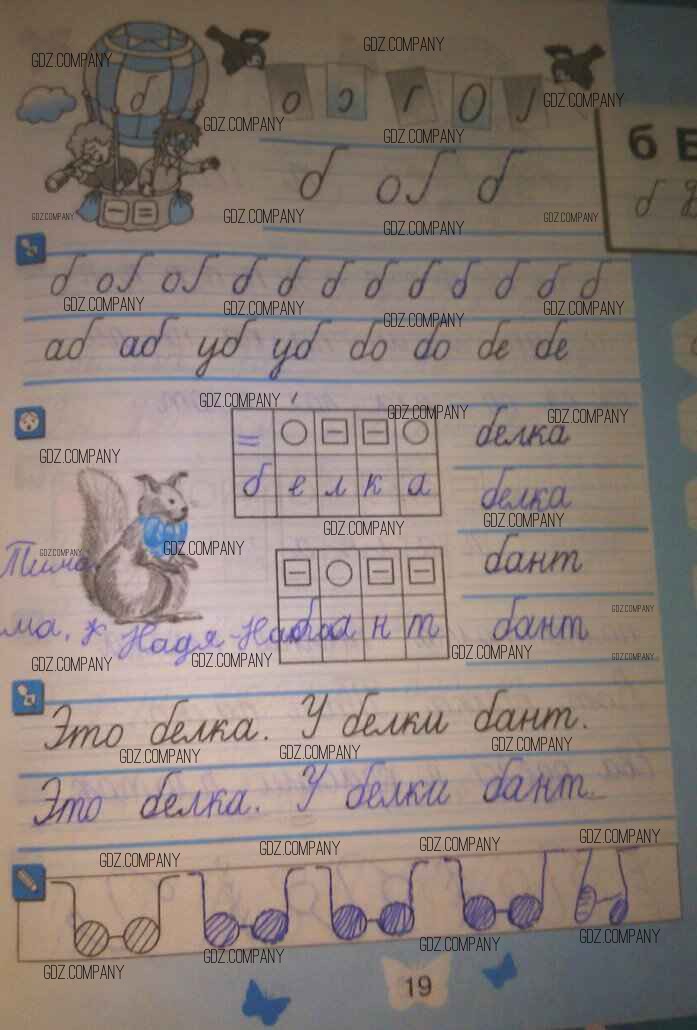 б
б Б
б б б
б б б б б б б б б б б б
аб аб уб уб бо бо бе бе
белка
белка
белка
бант
Тима.
бант
бант
ма, Надя
Это белка. У белки бант.
Это белка. У белки бант.
19
GDZ.COMPANY